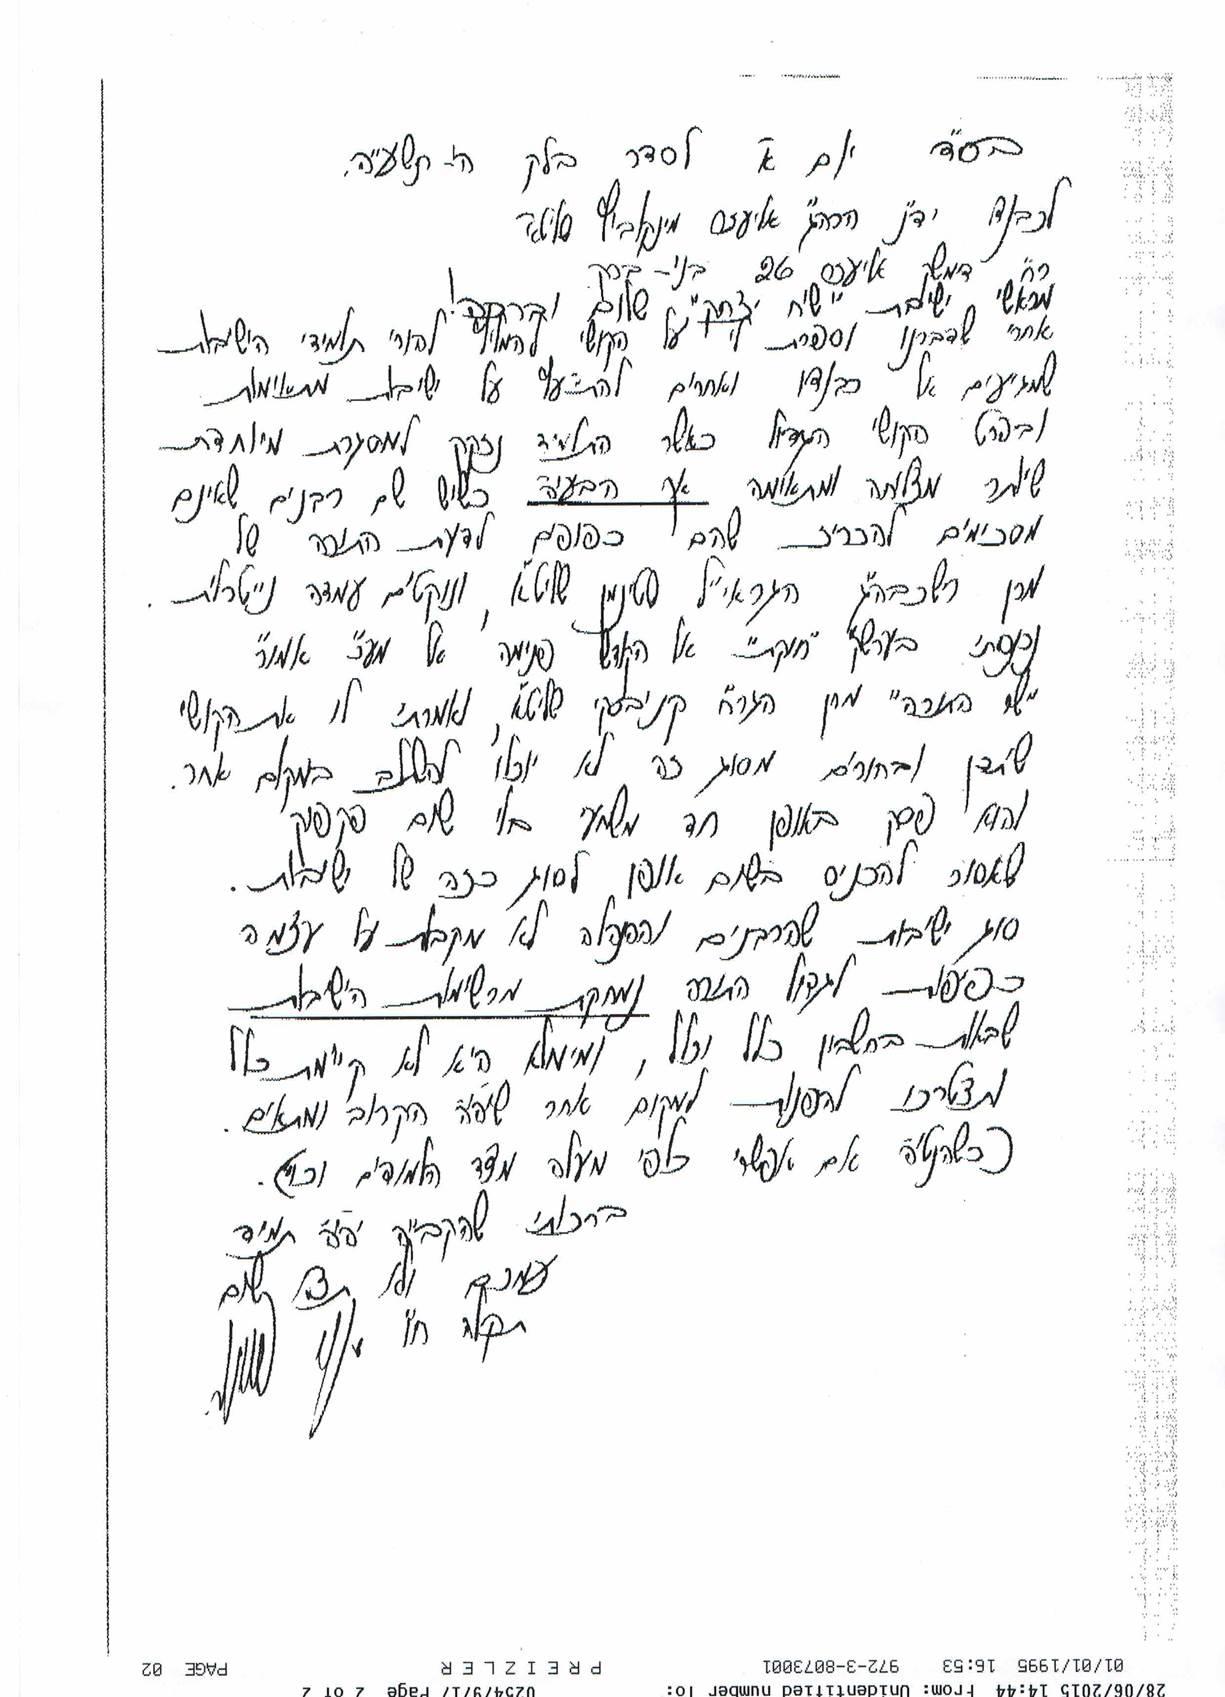 בס״ד יום א לסדר בלק ה׳ תשע״ה.
לכבוד ידי״נ הרה״ג אליעזר שליט״א
רח׳ דמשק אליעזר בני-ברק
מראשי ישיבת "שיח יצחק" שלום וברכה!
אחרי שדברנו וספרת לי על הקושי להמליץ להורי תלמידי הישיבות
שמגיעים אל כבודו ואחרים להתיעץ על ישיבות מתאימות
ובפרט הקושי הגדול כאשר התלמיד נזקק למסגרת מיוחדת
שיותר מצליחה ומתאימה אך הבעיה כשיש שם רבנים שאינם
מסכימים להכריז שהם כפופים לדעת התורה של
מרן רשכבה״ג הגראי״ל שטינמן שליט״א, ונוקטים עמדה נייטרלית.
נכנסתי בערש״ק "חוקת" אל הקודש פנימה, אל מע״כ אמו״ר
"שר התורה" מרן הגר״ח קניבסקי שליט״א, ואמרתי לו את הקושי
שיתכן ובחורים מסוג זה לא יוכלו להשתלב במקום אחר.
והוא פסק באופן חד משמעי בלי שום פקפוק
שאסור להכניס בשום אופן לסוג כזה של ישיבות.
סוג ישיבות שהרבנים וההנהלה לא מקבלת על עצמה
כפיפות לגדולי התורה נמחקת מרשימת הישיבות
שבאות בחשבון כלל וכלל, וממילא היא לא קיימת כלל
ותצטרכו להפנות למקום אחר שיהיה הקרוב ומתאים.
(כשהנטיה אם אפשר כלפי מעלה מצד הלמודים וכו׳).
ברכותי שהקב״ה יהיה תמיד
עמכם ולא תצא שום
תקלה ח״ו
01/01/1995 16:53 972-3-8073001 PREIZLER PAGE 02
28/06/2015 14:44 From: Unidentified number To: 0254/9/1/ Page 2 of 2